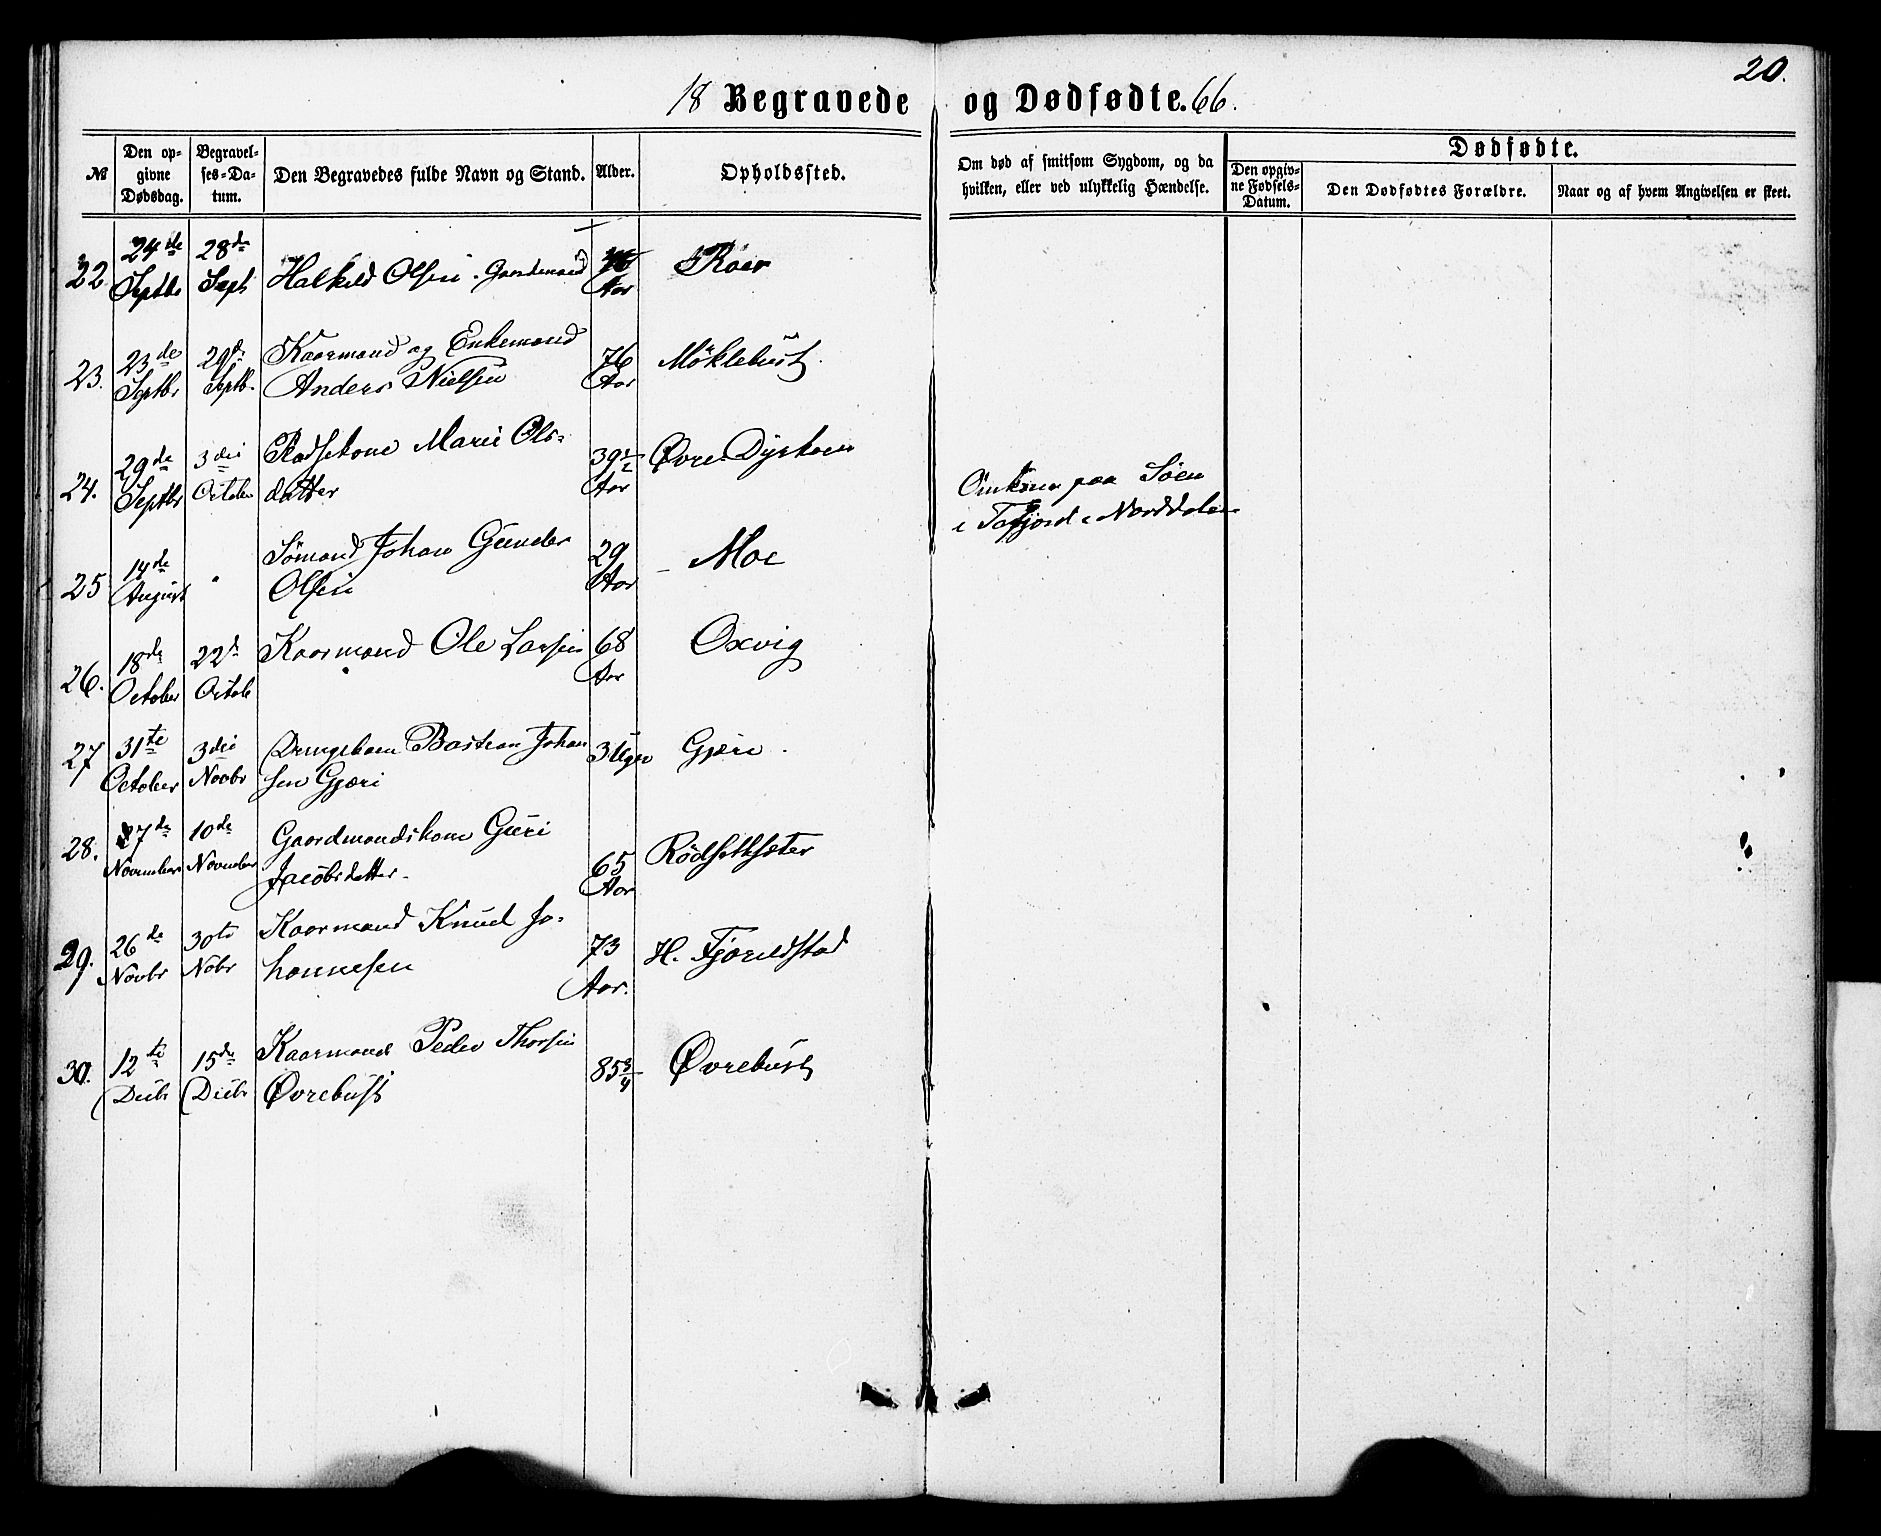 20.
18 Begravede og Dødfødte. 66.
№ Den opgivne Dødsdag. Begravelses-Datum. Den Begravedes fulde Navn og Stand. Alder. Opholdssted. Om død af smitsom Sygdom, og da hvilken, eller ved ulykkelig Hændelse. Dødfødte.
Den opgivne Fødsels-Datum. Den Dødfødtes Forældre. Naar og af hvem Angivelsen er skeet.
22. 24de 28de
Septbr Sept Halkild Olsen. Gaardmand Aar
23. 23de 29de Kaarmand og Enkemand 76 Møklebust.
Septbr Septb. Anders Nielsen Aar
24. 29de 3die Marie Ols- 39½ Øvre
Septbr Octobr datter Aar
paa Søen
i Tafjord i Norddalen
25 14de Sømand Johan Gunder 29 Moe
August " Olsen Aar
26. 18de 22de Kaarmand Ole Larsen 68 Oxvig
October Octob Aar
27 31te 3die Drengebarn Bastian Johan 3 Uger Gjære.
October Novbr sen Gjære
28. 10de Gaardmandskone Guri 65 Rødsetsæter
November November Jacobsdatter. Aar
29. 26de 30te Kaarmand Knud Jo- 73 H. Fjørtdstad
Novbr Nobr hannesen Aar.
30. 12te 15de Kaarmand Peder Thorsen 85¾ Øvrebust
Decbr Decbr Øvrebust